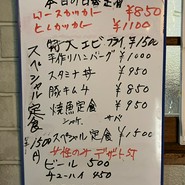 本日の日替定食
ロースカツカレー ¥850
ヒレカツカレー ¥1100
スペシャル定食 ¥1500円
特大エビフライ ¥1500
手作りハンバーグ ¥1000
スタミナ丼 ¥950
豚キムチ ¥850
焼魚定食 ¥950
シャケ サバ
スペシャル定食 ¥1500
女性のみデザート付
ビール 500
チューハイ 450